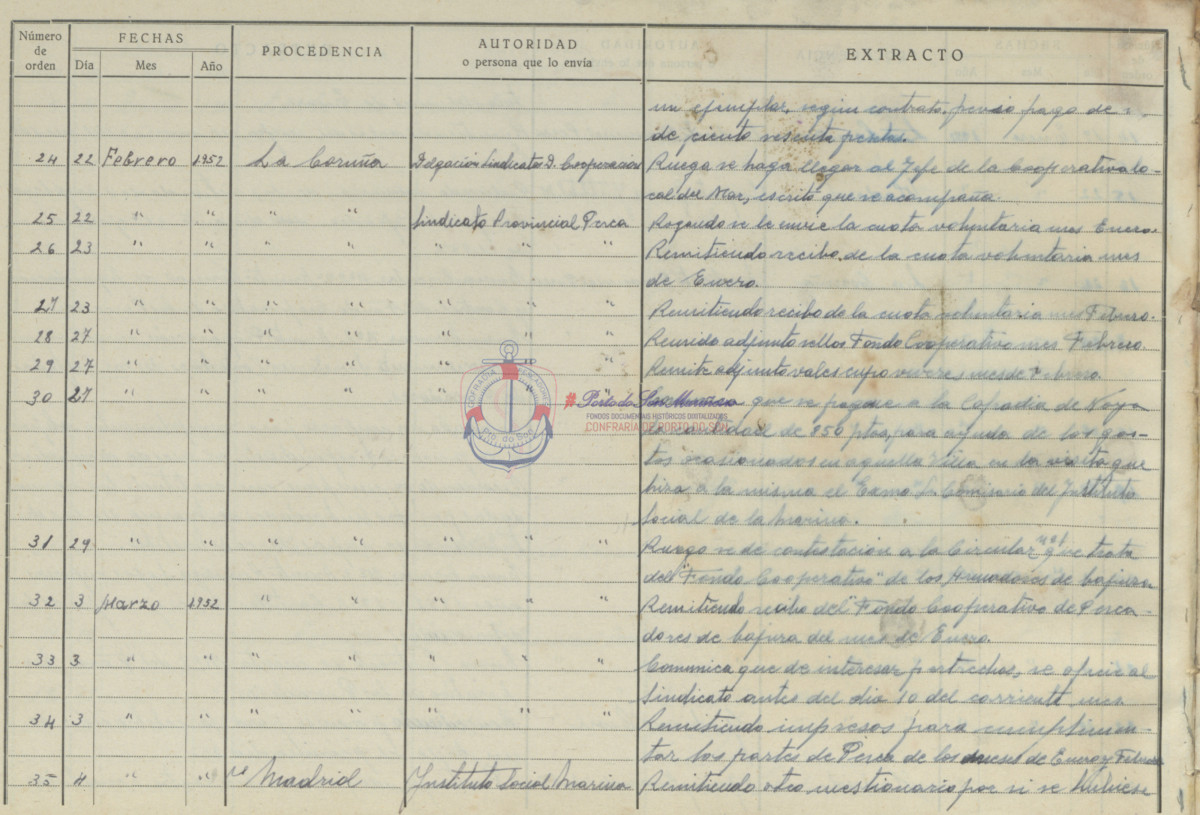 Número de orden FECHAS Día Mes Año PROCEDENCIA AUTORIDAD o persona que lo envía EXTRACTO
un ejemplar, según contrato, previo pago de
de ciento sesenta pesetas.
24 22 Febrero 1952 La Coruña Delgación Sindicatos D. Cooperación Ruega se haga llegar al Jefe de la Cooperativa lo-
cal del Mar, escrito que se acompaña.
25 22 " " " " Sindicato Provincial Pesca Rogando se le envie la cuota voluntaria mes Enero.
26 23 " " " " " " " Remitiendo recibo, de la cuota voluntaria mes
de Enero.
27 23 " " " " " " " Remitiendo recibo de la cuota voluntaria mes Febrero.
28 27 " " " " " " " adjunto sellos Fondo Cooperativo mes Febrero.
29 27 " " " " " " " Remite adjunto vales cupo viveres mes de Febrero.
30 27 " " " " " que se pague a la Cofradia de Noya
cantidad de 850 ptas, para ayuda de los gas-
tos ocasionados en aquella Villa en la visita que
hizo a la misma el Excmo. Sr. Comisario del Instituto
Social de la Marina.
CONFRARÍA PTO. DO SON
#Porto do Son
FONDOS DOCUMENTAIS HISTÓRICOS DIXITALIZADOS
CONFRARÍA DE PORTO DO SON
31 29 " " " " " " " Ruego se de contestación a la Circular nº 1 que trata
del "Fondo Cooperativo" de los Armadores de bajura
32 3 Marzo 1952 " " " " " Remitiendo recibo del "Fondo Cooperativo de Pesca-
dores de bajura del mes de Enero.
33 3 " " " " " " " Comunica que de interesar pertrechos, se oficie al
Sindicato antes del dia 10 del corriente mes
34 3 " " " " " " " Remitiendo impresos para cumplimen-
tar los partes de Pesca de los meses de Enero y Febrero
35 4 " " Madrid Instituto Social Marina Remitiendo otro cuestionario por si se hubiese